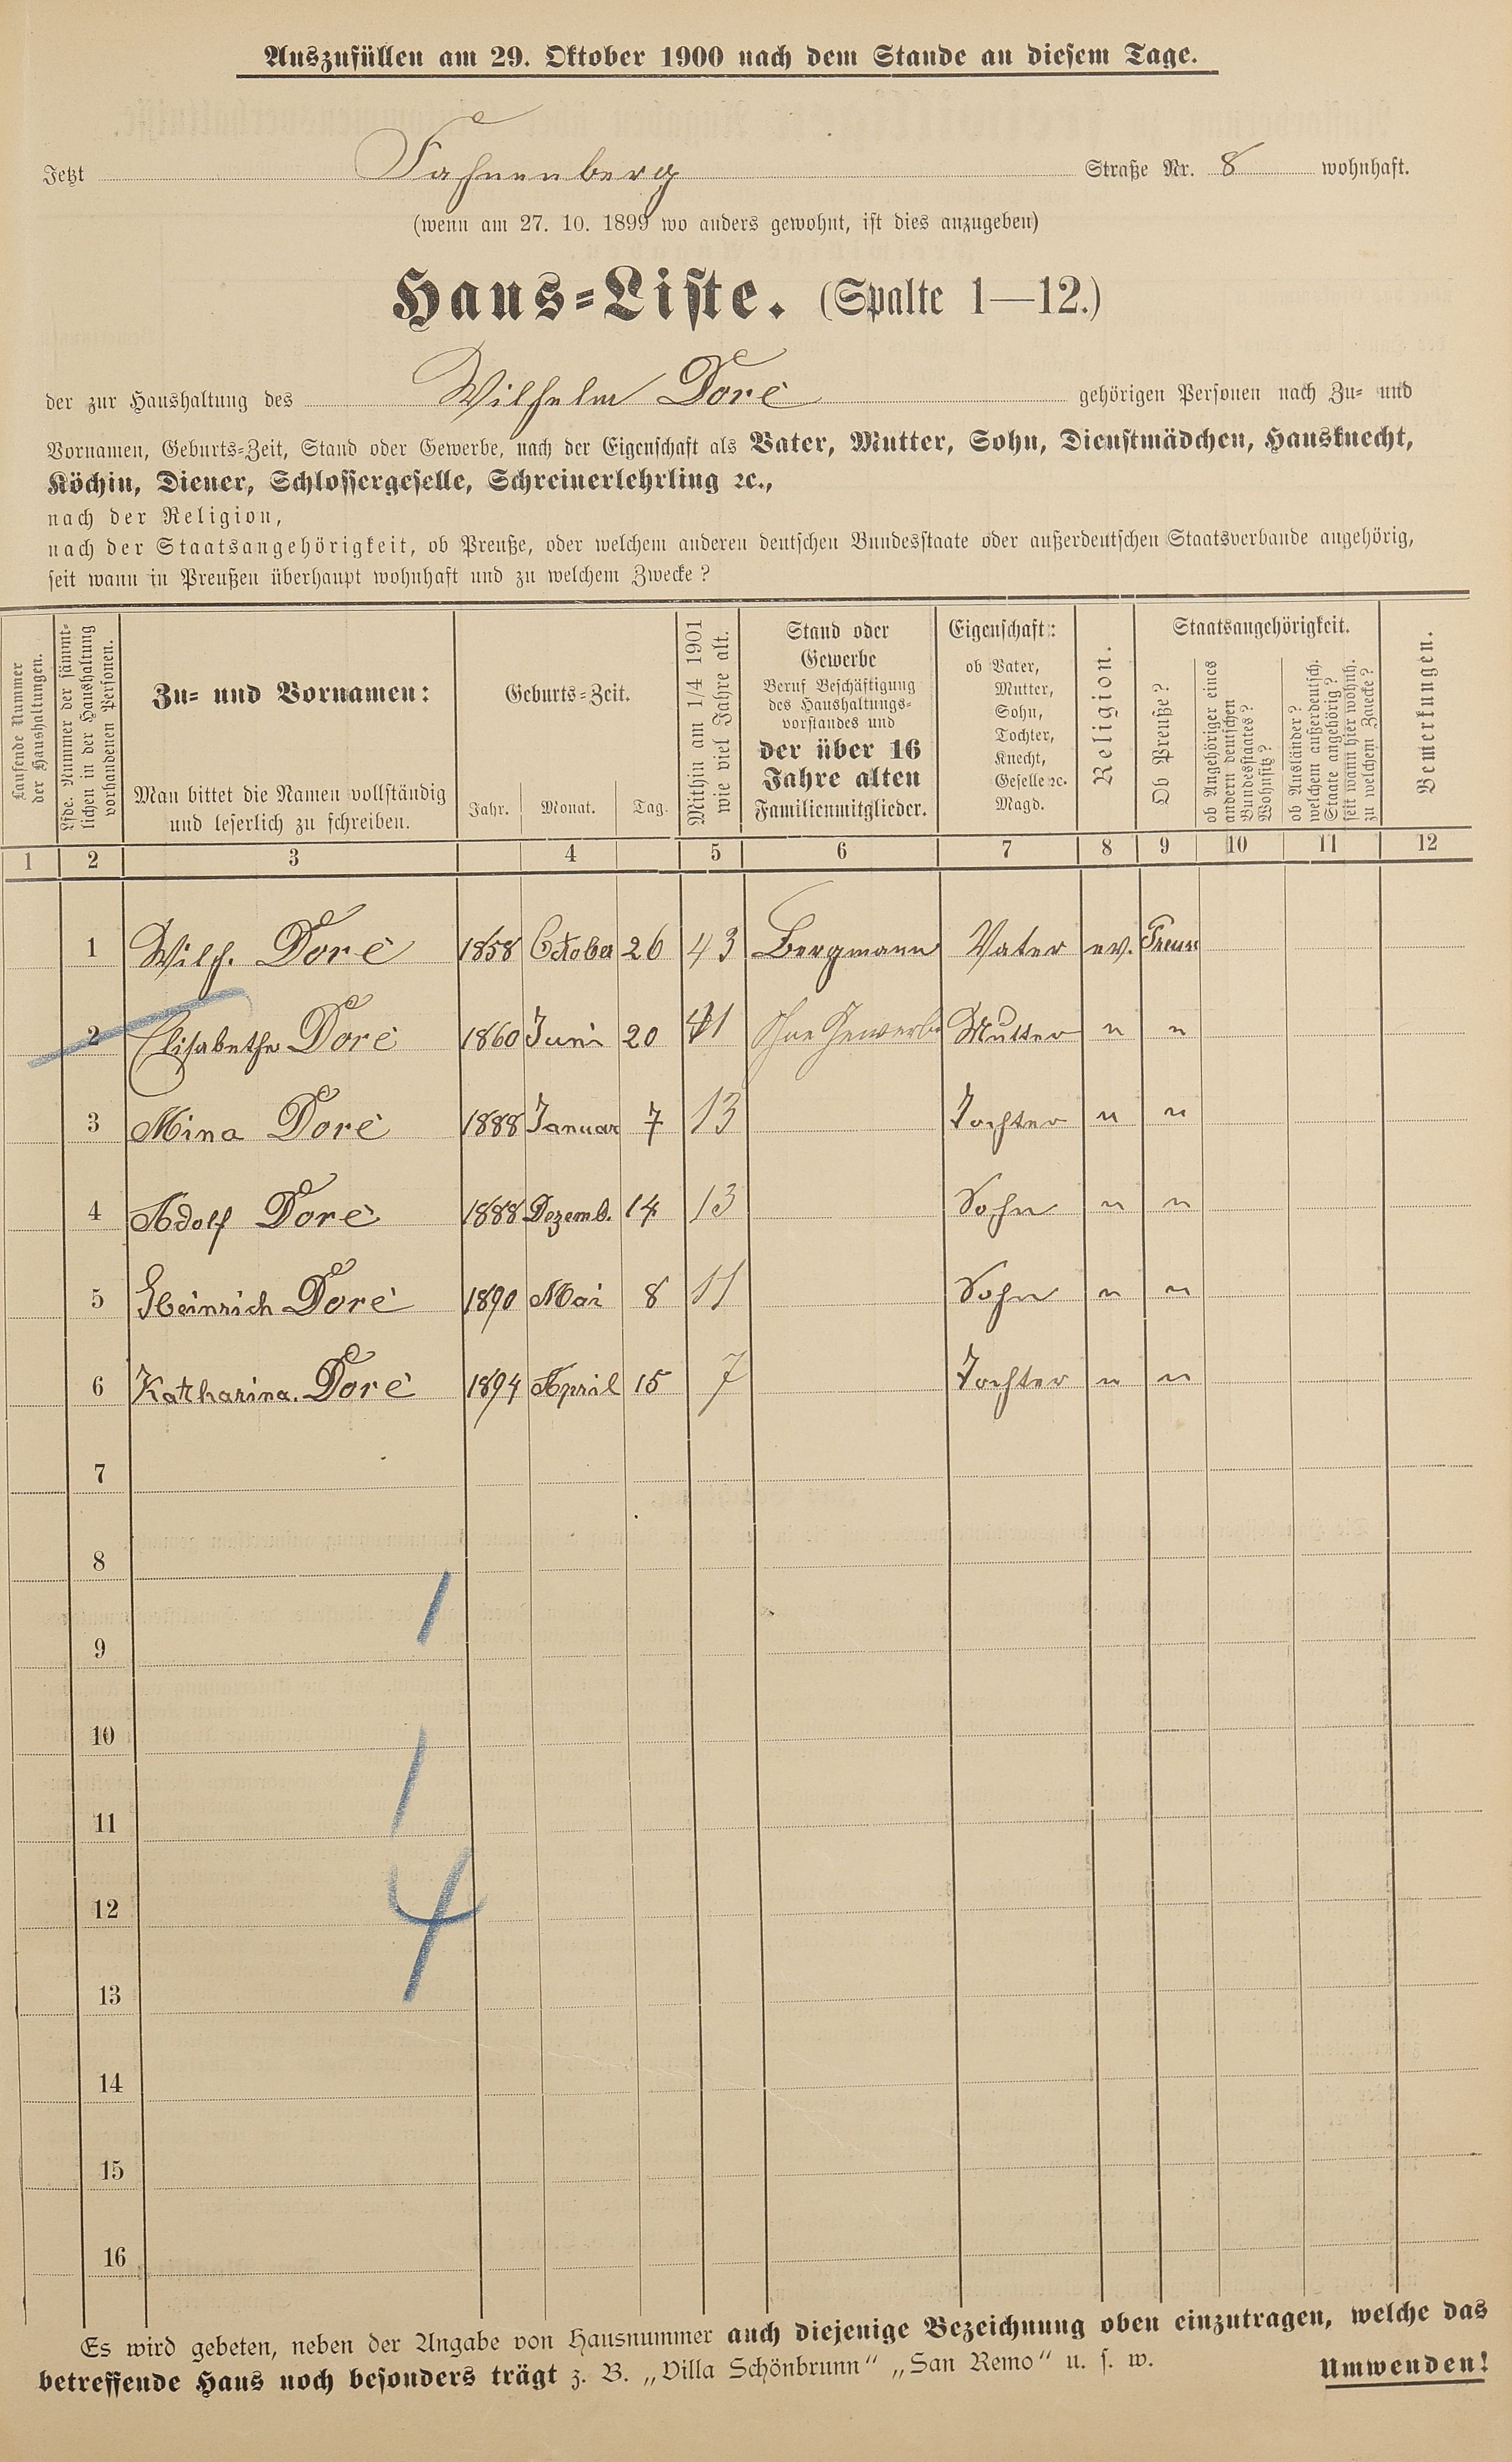 Auszufüllen am 29. Oktober 1900 nach dem Stande an diesem Tage.
Jetzt Fahnenberg Straße Nr. 8 wohnhaft.
(wenn am 27. 10. 1899 wo anders gewohnt, ist dies anzugeben)
Haus-Liste. (Spalte 1—12.)
der zur Haushaltung des Wilhelm Dorè gehörigen Personen nach Zu- und
Vornamen, Geburts-Zeit, Stand oder Gewerbe, nach der Eigenschaft als Vater, Mutter, Sohn, Dienstmädchen, Hausknecht,
Köchin, Diener, Schlossergeselle, Schreinerlehrling ꝛc.,
nach der Religion,
nach der Staatsangehörigkeit, ob Preuße, oder welchem anderen deutschen Bundesstaate oder außerdeutschen Staatsverbande angehörig,
seit wann in Preußen überhaupt wohnhaft und zu welchem Zwecke?
Laufende Nummer
der Haushaltungen.
Lfde. Nummer der sämmt-
lichen in der Haushaltung
vorhandenen Personen.
Zu- und Vornamen:
Man bittet die Namen vollständig
und leserlich zu schreiben.
Geburts-Zeit.
Jahr. Monat. Tag.
Mithin am 1/4 1901
wie viel Jahre alt.
Stand oder
Gewerbe
Beruf Beschäftigung
des Haushaltungs-
vorstandes und
der über 16
Jahre alten
Familienmitglieder.
Eigenschaft:
ob Vater,
Mutter,
Sohn,
Tochter,
Knecht,
Geselle ꝛc.
Magd.
Religion.
Staatsangehörigkeit.
Ob Preuße?
ob Angehöriger eines
andern deutschen
Bundesstaates?
Wohnsitz?
ob Ausländer?
welchem außerdeutsch.
Staate angehörig?
seit wann hier wohnh.
zu welchem Zwecke?
Bemerkungen.
1 2 3 4 5 6 7 8 9 10 11 12
1 Wilh. Dorè 1858 October 26 43 Bergmann Vater ev. Preuss
2 Elisabethe Dorè 1860 Juni 20 41 Ohne Gewerbe Mutter " "
3 Mina Dorè 1888 Januar 7 13 Tochter " "
4 Adolf Dorè 1888 Dezemb. 14 13 Sohn " "
5 Heinrich Dorè 1890 Mai 8 11 Sohn " "
6 Katharina. Dorè 1894 April 15 7 Tochter " "
7
8
1
9
10
1
11
12
4
13
14
15
16
Es wird gebeten, neben der Angabe von Hausnummer auch diejenige Bezeichnung oben einzutragen, welche das
betreffende Haus noch besonders trägt z. B. „Villa Schönbrunn“ „San Remo“ u. s. w.
Umwenden!